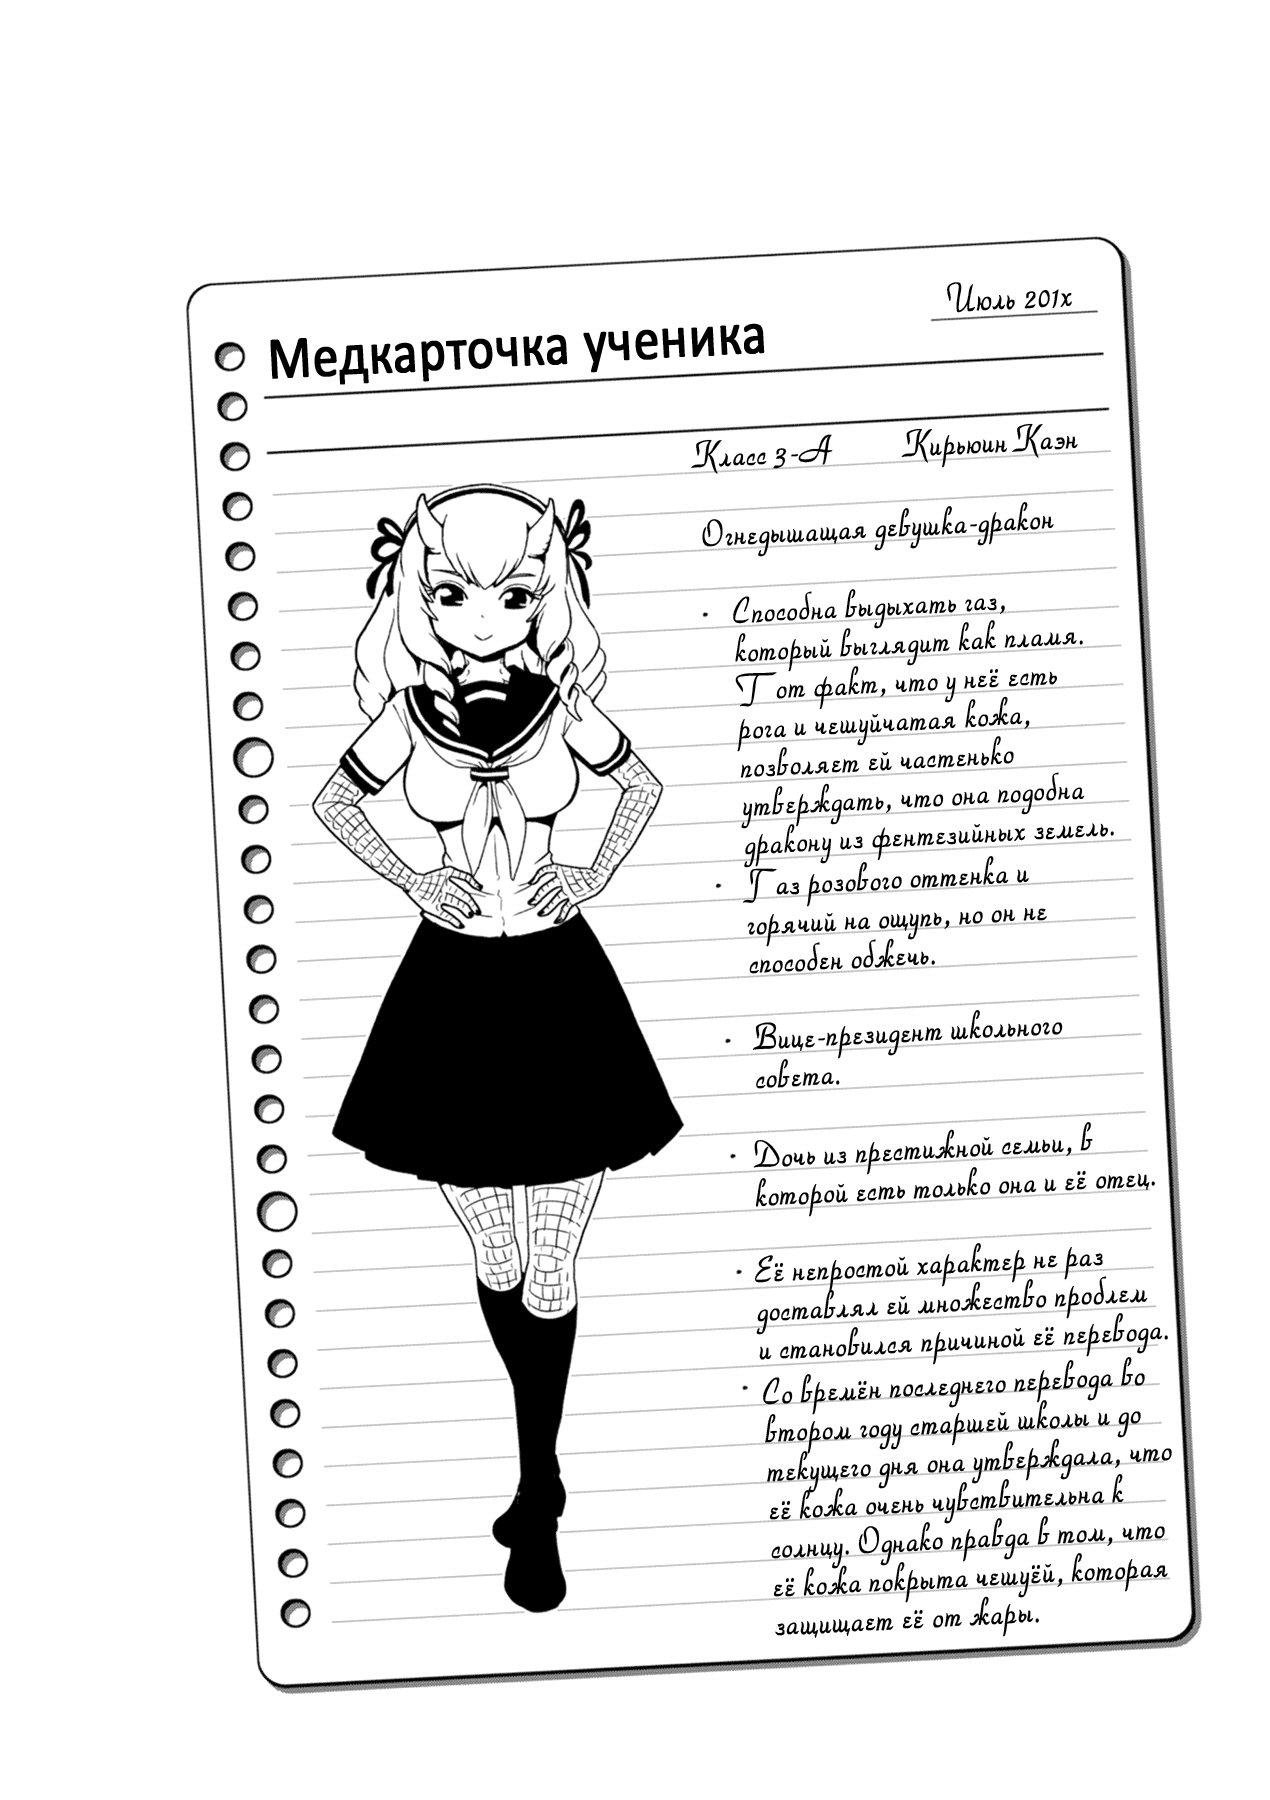 Июль 201х
Медкарточка ученика
Класс 3-А Кирьюин Каэн
Огнедышащая девушка-дракон
· Способна выдыхать газ,
который выглядит как пламя.
Тот факт, что у неё есть
рога и чешуйчатая кожа,
позволяет ей частенько
утверждать, что она подобна
дракону из фентезийных земель.
· Газ розового оттенка и
горячий на ощупь, но он не
способен обжечь.
· Вице-президент школьного
совета.
· Дочь из престижной семьи, в
которой есть только она и её отец.
· Её непростой характер не раз
доставлял ей множество проблем
и становился причиной её перевода.
· Со времён последнего перевода во
втором году старшей школы и до
текущего дня она утверждала, что
её кожа очень чувствительна к
солнцу. Однако правда в том, что
её кожа покрыта чешуёй, которая
защищает её от жары.